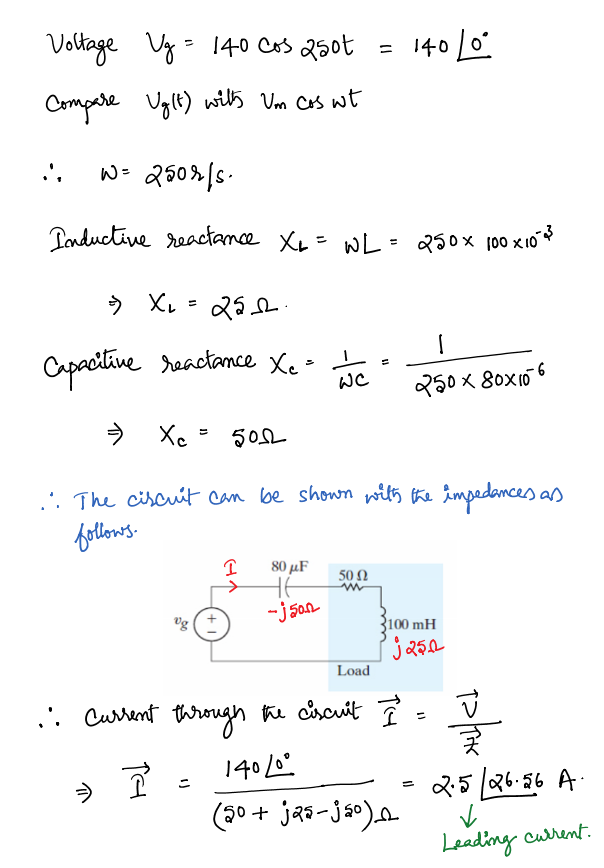 Voltage Vg = 140 cos 250t = 140 ∠0°
Compare Vg(t) with Vm cos wt
∴ W = 250 r/s.
Inductive reactance XL = WL = 250 × 100 × 10⁻³
⇒ XL = 25 Ω.
Capacitive reactance Xc = 1/WC = 1/(250 × 80×10⁻⁶)
⇒ Xc = 50Ω
∴ The circuit can be shown with the impedances as
follows.
I 80 μF 50 Ω
-j50Ω
vg + − 100 mH
j25Ω
Load
∴ Current through the circuit I⃗ = V⃗/Z⃗
⇒ I⃗ = 140∠0°/(50 + j25 - j50)Ω = 2.5∠26.56 A.
Leading current.